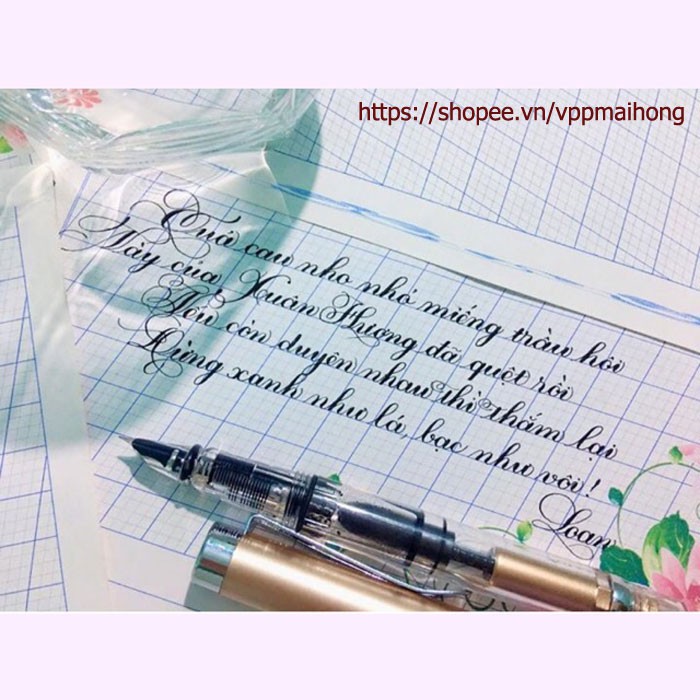 https://shopee.vn/vppmaihong
Quả cau nho nhỏ miếng trầu hôi
Này của Xuân Hương đã quệt rồi
Nếu còn duyên nhau thì thắm lại
Đừng xanh như lá, bạc như vôi!
Loan